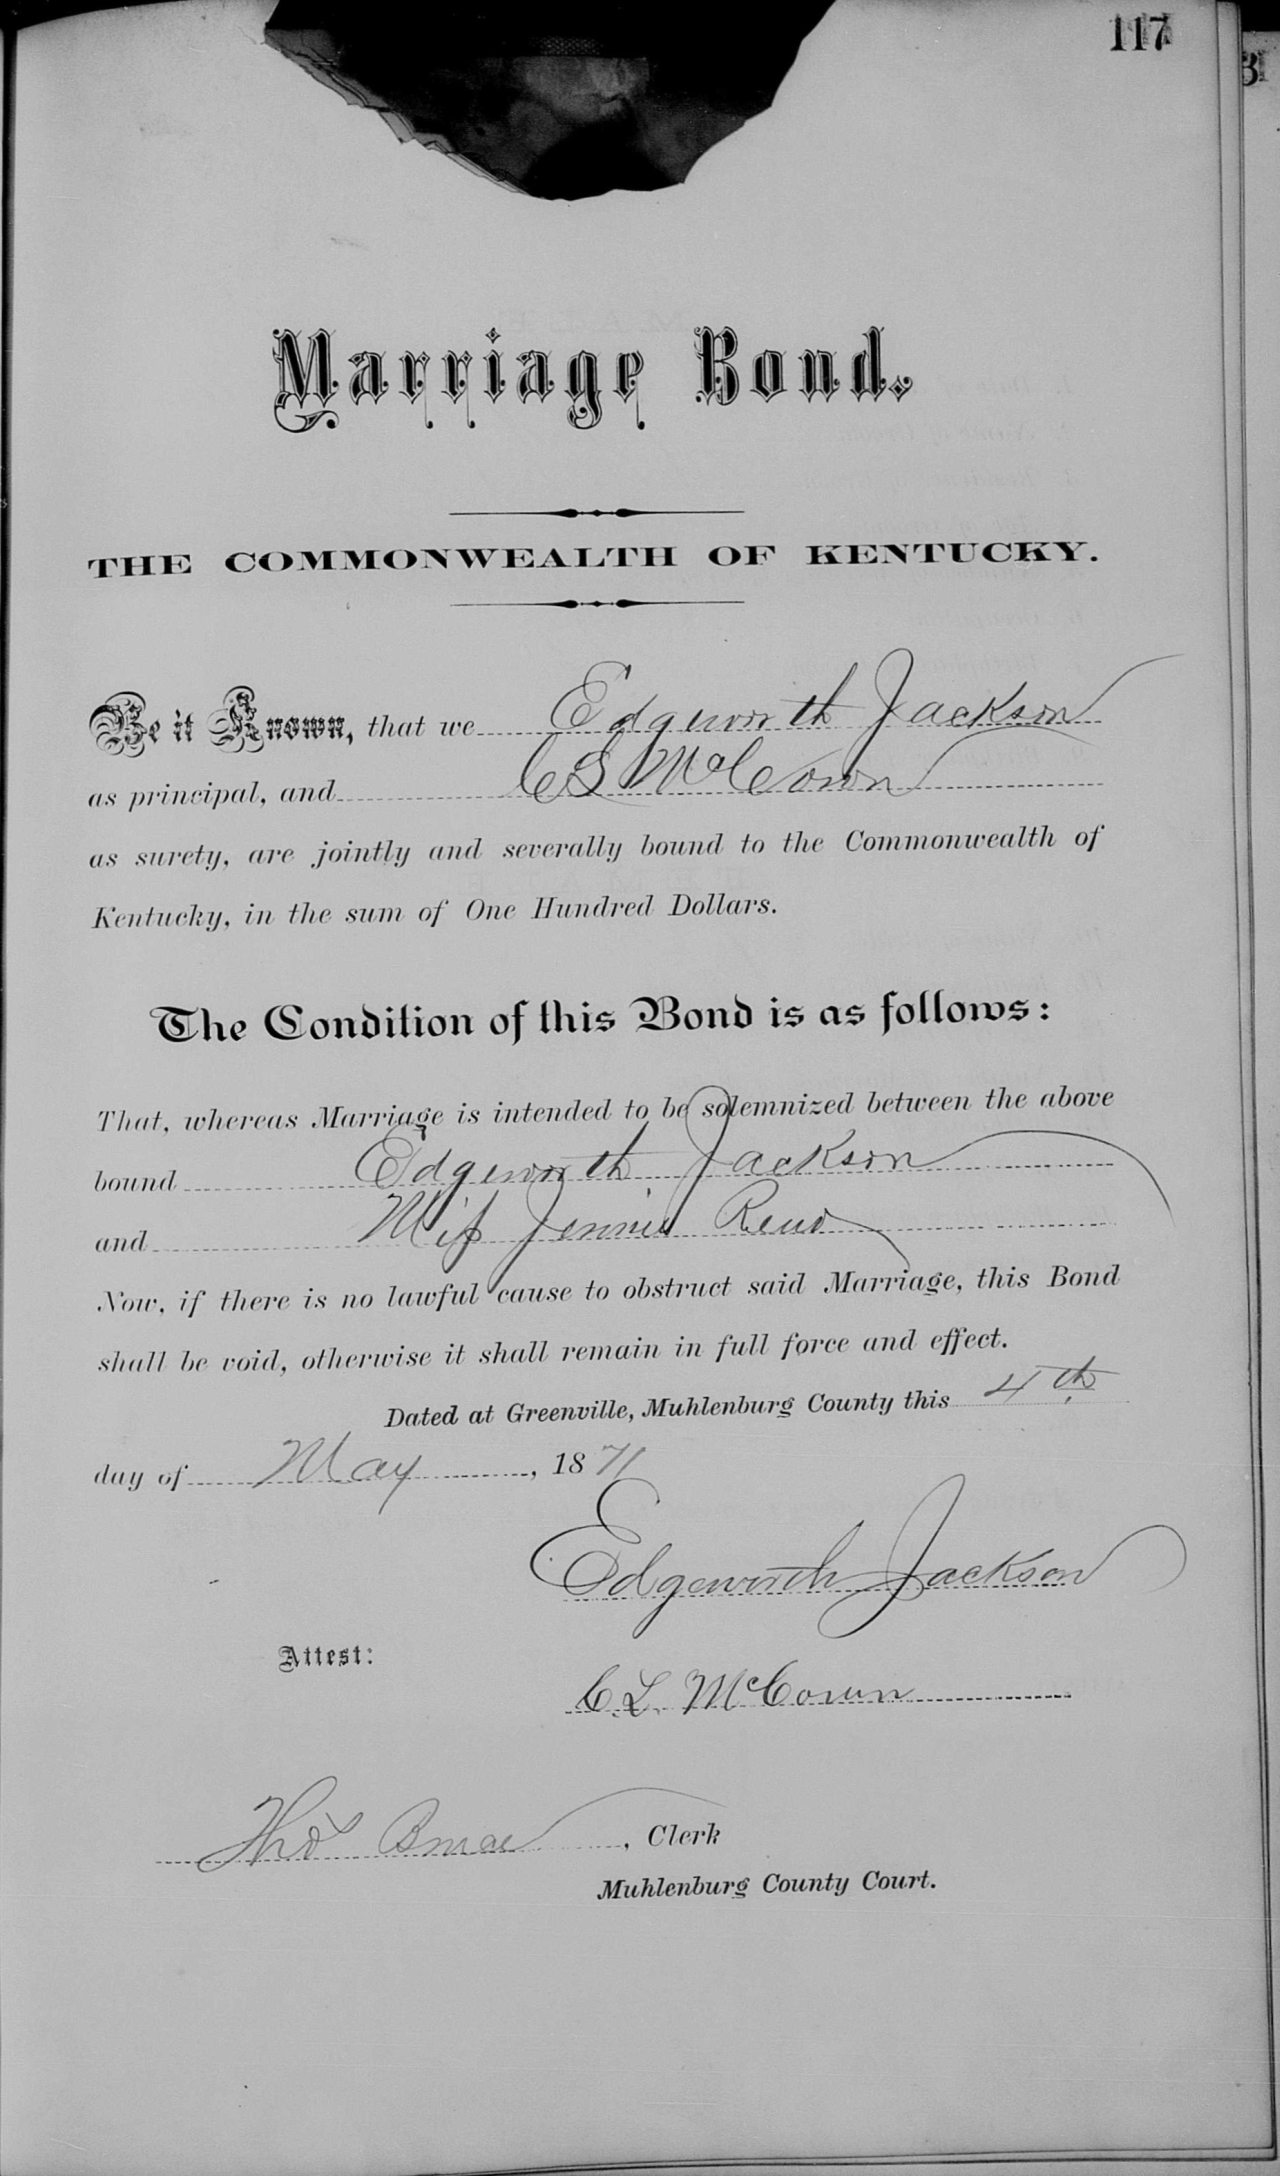 117
Marriage Bond.
THE COMMONWEALTH OF KENTUCKY.
Be it Known, that we Edgeworth Jackson
as principal, and C S McCown
as surety, are jointly and severally bound to the Commonwealth of
Kentucky, in the sum of One Hundred Dollars.
The Condition of this Bond is as follows:
That, whereas Marriage is intended to be solemnized between the above
bound Edgeworth Jackson
and Miss Jennie
Now, if there is no lawful cause to obstruct said Marriage, this Bond
shall be void, otherwise it shall remain in full force and effect.
Dated at Greenville, Muhlenburg County this 4th
day of May, 1871
Edgeworth Jackson
Attest:
C. L. McCown
Thos, Clerk
Muhlenburg County Court.